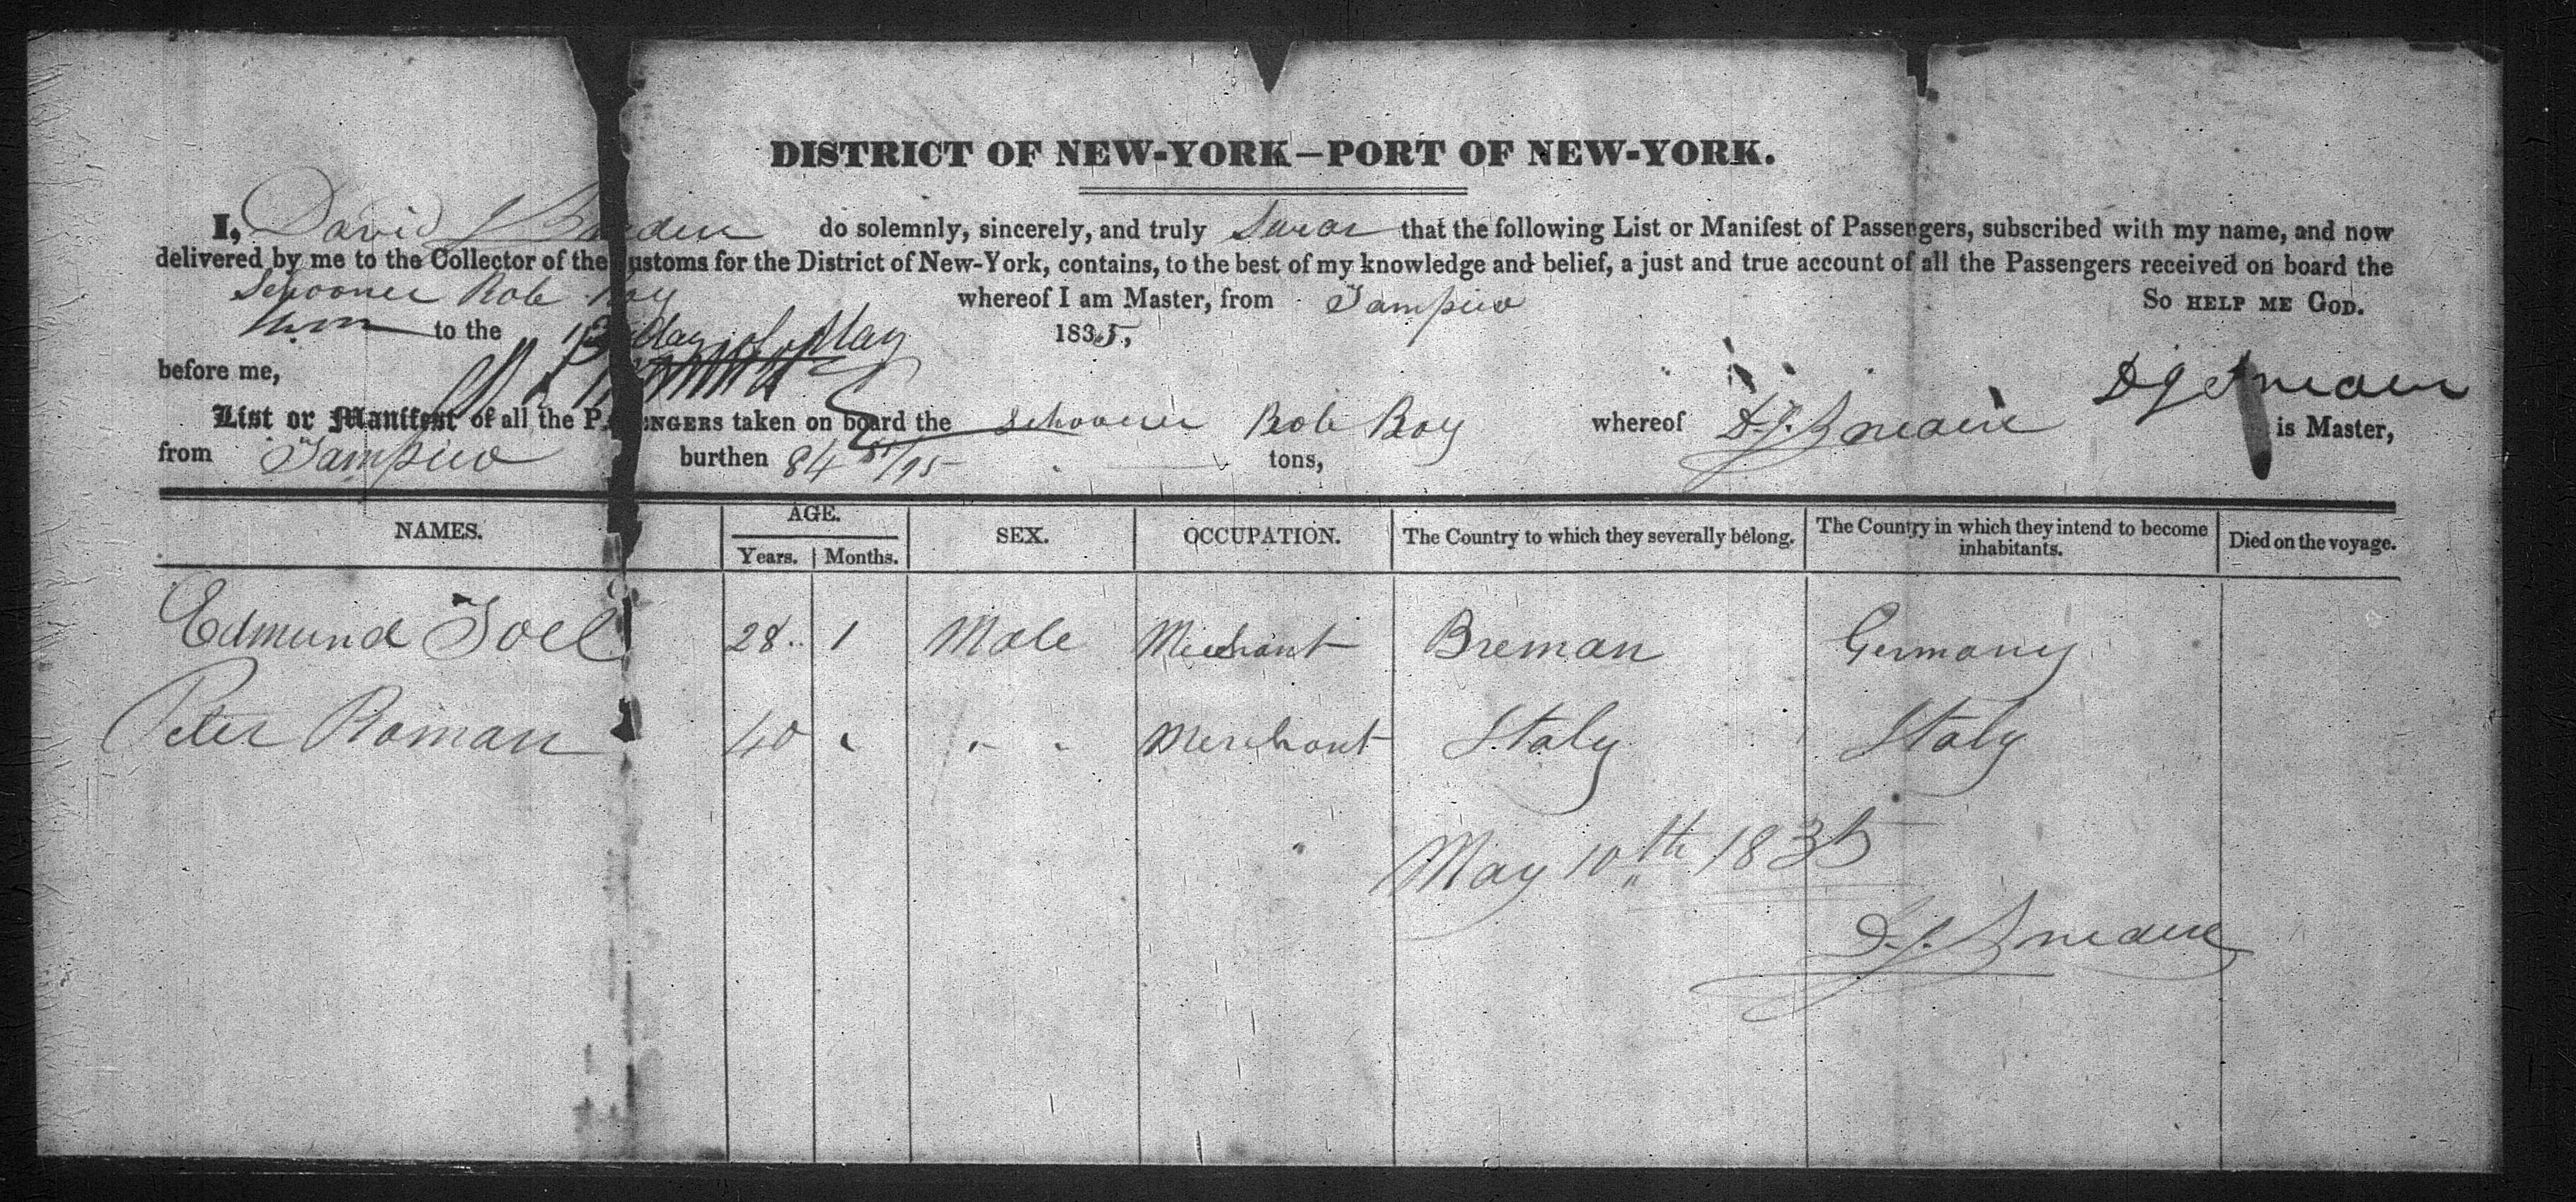 DISTRICT OF NEW-YORK—PORT OF NEW-YORK.
I, David J do solemnly, sincerely, and truly Swear that the following List or Manifest of Passengers, subscribed with my name, and now
delivered by me to the Collector of the ustoms for the District of New-York, contains, to the best of my knowledge and belief, a just and true account of all the Passengers received on board the
Schooner Rob Roy whereof I am Master, from Tampico So HELP ME GOD.
to the 13 day of May 1835,
before me,
List or Manifest of all the PASSENGERS taken on board the Schooner Rob Roy whereof is Master,
from Tampico burthen 84 tons,
NAMES. AGE. SEX. OCCUPATION. The Country to which they severally belong. The Country in which they intend to become inhabitants. Died on the voyage.
Years. Months.
Edmund Joel 28 1 Male Merchant Breman Germany
Peter Roman 40 " " " Merchant Italy Italy
May 10th 1835